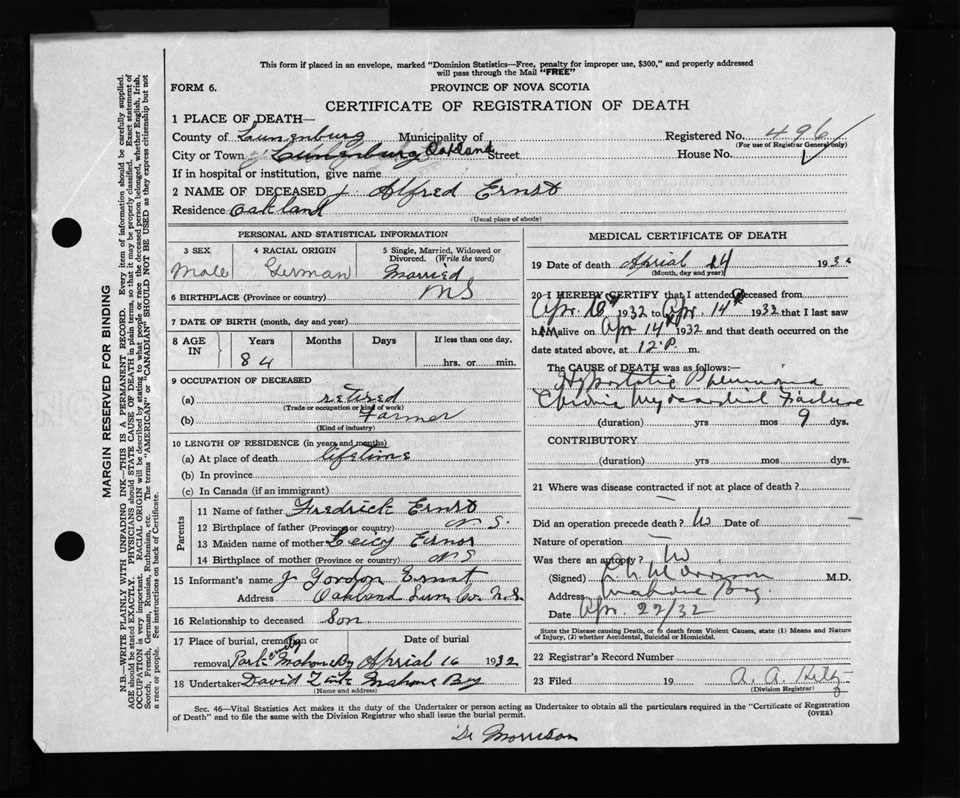 This form if placed in an envelope, marked "Dominion Statistics—Free, penalty for improper use, $300," and properly addressed
will pass through the Mail "FREE"
FORM 6.
PROVINCE OF NOVA SCOTIA
CERTIFICATE OF REGISTRATION OF DEATH
1 PLACE OF DEATH—
County of Lunenburg Municipality of Registered No. 496
(For use of Registrar General only)
City or Town Lunenburg Oakland Street House No.
If in hospital or institution, give name
2 NAME OF DECEASED Alfred Ernst
Residence Oakland
(Usual place of abode)
PERSONAL AND STATISTICAL INFORMATION
3 SEX 4 RACIAL ORIGIN 5 Single, Married, Widowed or Divorced. (Write the word)
Male German Married
6 BIRTHPLACE (Province or country) NS
7 DATE OF BIRTH (month, day and year)
8 AGE IN Years Months Days If less than one day,
84 hrs. or min.
9 OCCUPATION OF DECEASED
(a) retired
(Trade or occupation or kind of work)
(b) Farmer
(Kind of industry)
10 LENGTH OF RESIDENCE (in years and months)
(a) At place of death lifetime
(b) In province
(c) In Canada (if an immigrant)
Parents
11 Name of father Fredrick Ernst
12 Birthplace of father (Province or country) N S.
13 Maiden name of mother
14 Birthplace of mother (Province or country) N S
15 Informant's name J Gordon Ernst
Address Oakland Lun. Co. N.S.
16 Relationship to deceased Son.
17 Place of burial, cremation or Date of burial
removal Park Mahone Bay Aprial 16 1932
18 Undertaker David Mahone Bay
(Name and address)
MEDICAL CERTIFICATE OF DEATH
19 Date of death Aprial 14 1932
(Month, day and year)
20 I HEREBY CERTIFY that I attended deceased from
Apr 10 1932 to Apr. 14 1932 that I last saw
him alive on Apr 14 1932 and that death occurred on
date stated above, at 12 P. m.
The CAUSE OF DEATH was as follows:—
Hypostatic Pneumonia
Chronic Myocardial Failure
(duration) yrs mos 9 dys.
CONTRIBUTORY
(duration) yrs mos dys.
21 Where was disease contracted if not at place of death?
Did an operation precede death? No Date of
Nature of operation
Was there an autopsy? No
(Signed) Morrison M.D.
Address Mahone Bay.
Date Apr. 22/32
State the Disease causing Death, or in death from Violent Causes, state (1) Means and Nature
of Injury, (2) whether Accidental, Suicidal or Homicidal.
22 Registrar's Record Number
23 Filed 19
(Division Registrar)
Sec. 46—Vital Statistics Act makes it the duty of the Undertaker or person acting as Undertaker to obtain all the particulars required in the "Certificate of Registration
of Death" and to file the same with the Division Registrar who shall issue the burial permit.
(OVER)
Dr Morrison
MARGIN RESERVED FOR BINDING
N.B.—WRITE PLAINLY WITH UNFADING INK—THIS IS A PERMANENT RECORD. Every item of information should be carefully supplied.
AGE should be stated EXACTLY. PHYSICIANS should STATE CAUSE OF DEATH in plain terms, so that it may be properly classified. Exact statement of
OCCUPATION is very important. RACIAL ORIGIN will be described by stating to what people or race the deceased person belonged, whether English, Irish,
Scotch, French, German, Russian, Ruthenian, etc. The terms "AMERICAN" or "CANADIAN" SHOULD NOT BE USED as they express citizenship but not
a race or people. See instructions on back of Certificate.